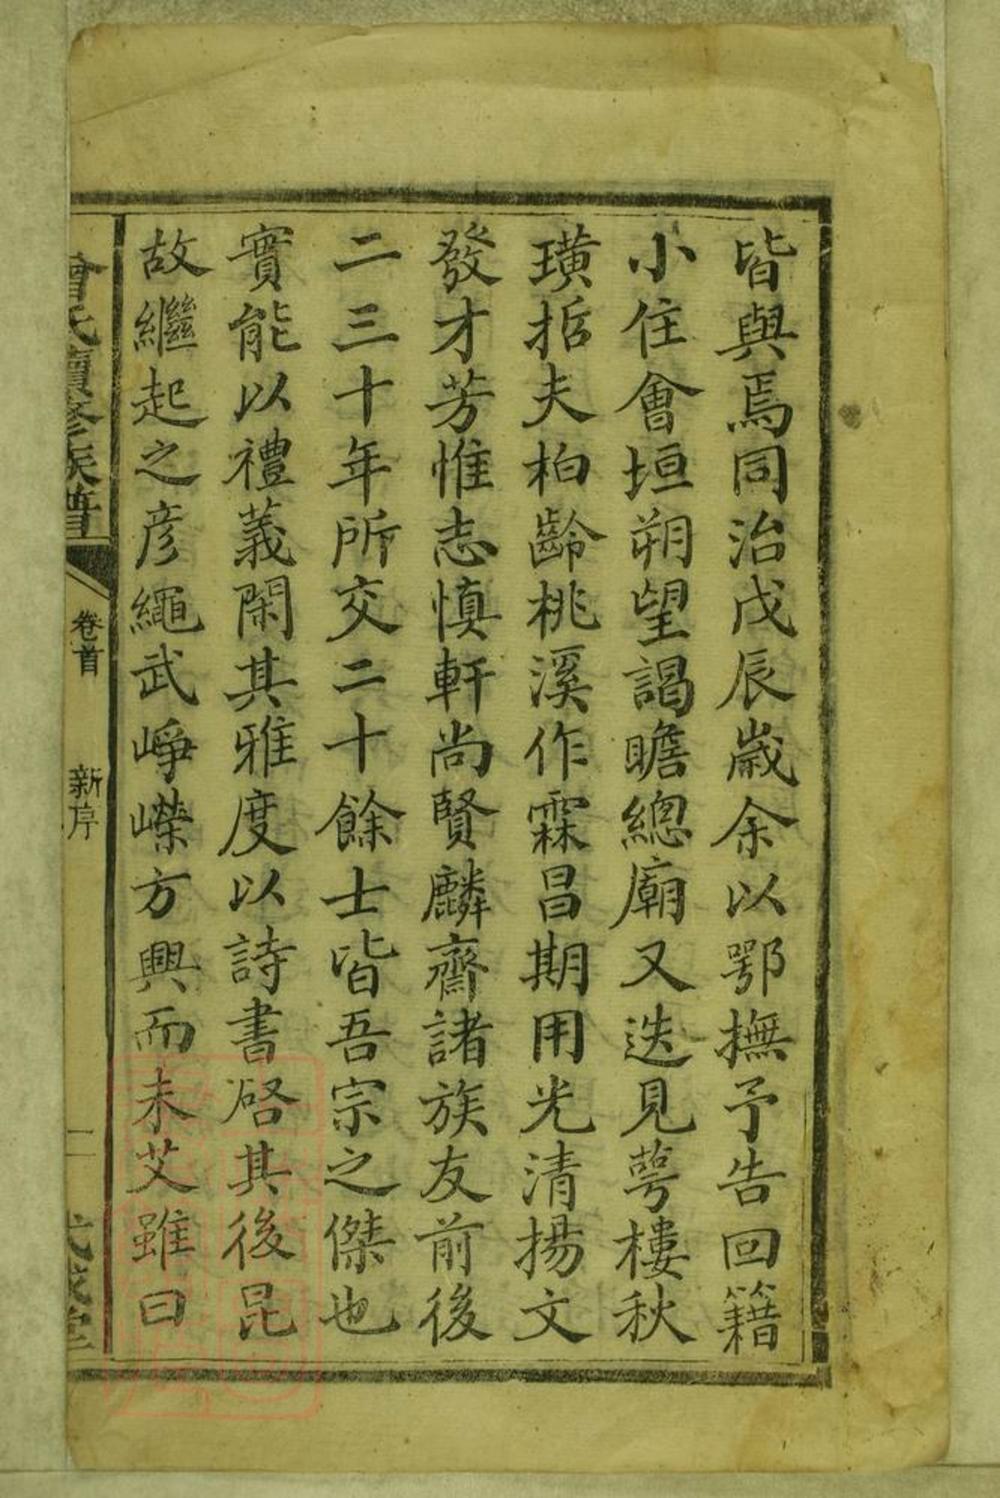 皆與焉同治戊辰歲余以鄂撫予告回籍
小住會垣朔望謁瞻總廟又迭見萼樓秋
璜哲夫柏齡桃溪作霖昌期用光清揚文
發才芳惟志慎軒尚賢麟齋諸族友前後
二三十年所交二十餘士皆吾宗之傑也
實能以禮義閑其雅度以詩書啓其後昆
故繼起之彥繩武崢嶸方興而未艾雖曰
曾氏續修族譜
卷首
新序
二